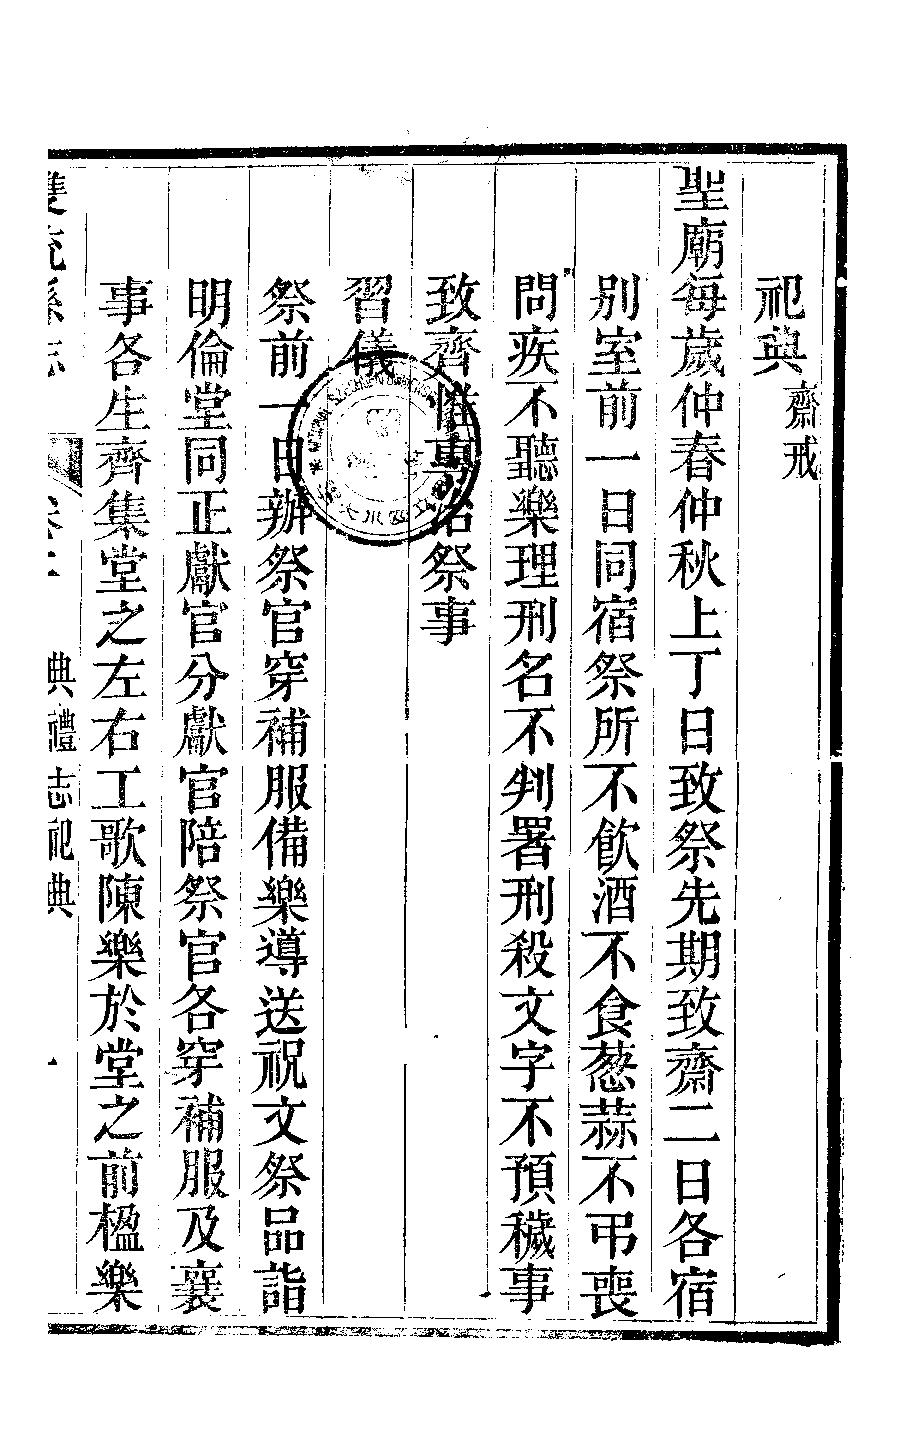 祀典 齋戒
聖廟每歲仲春仲秋上丁日致祭先期致齋二日各宿
別室前一日同宿祭所不飲酒不食葱蒜不弔喪
問疾不聽樂理刑名不判署刑殺文字不預穢事
致齊惟專治祭事
習儀
祭前一日辦祭官穿補服備樂導送祝文祭品詣
明倫堂同正獻官分獻官陪祭官各穿補服及襄
事各生齊集堂之左右工歌陳樂於堂之前楹樂
雙流縣志 卷二 典禮志祀典 一